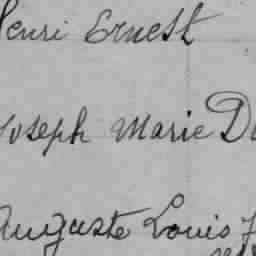 Henri Ernest
Joseph Marie
Auguste Louis